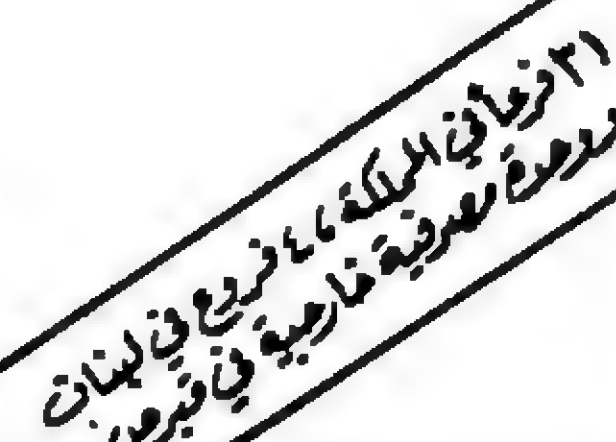 ٣١ فرعاً في المملكة ، ٤ فروع في لبنان
ووحدة مصرفية خارجية في قبرص